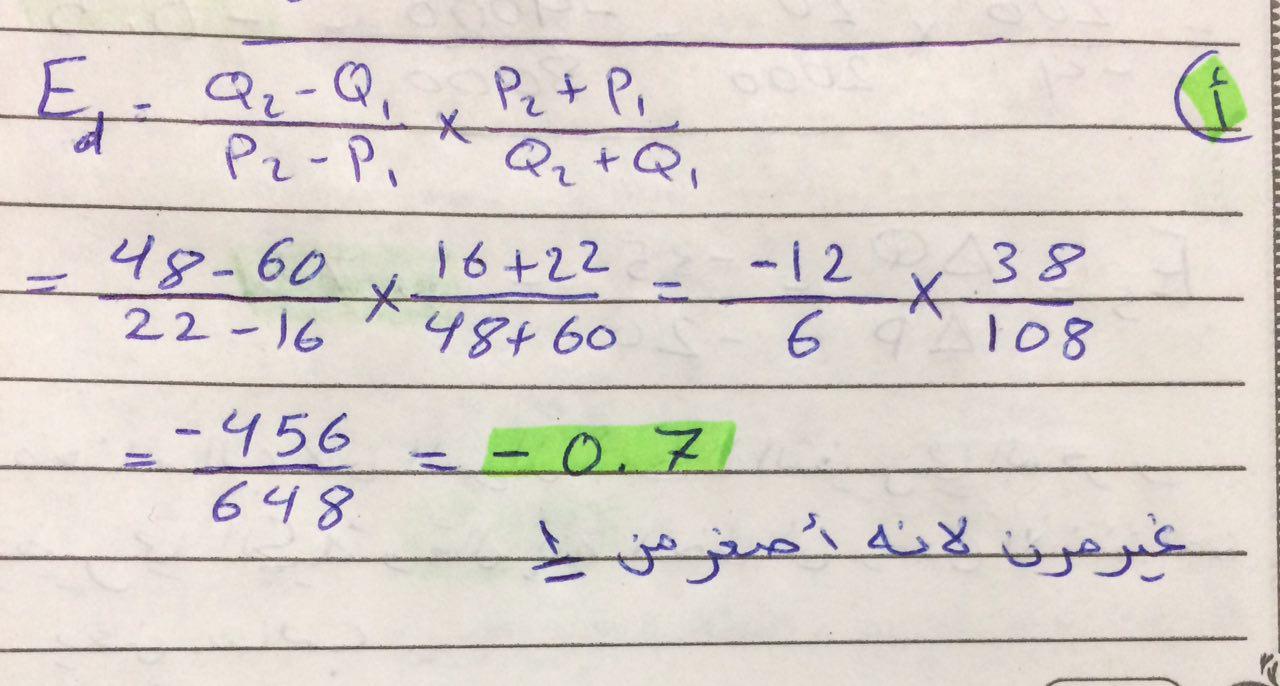 أ
E_d = (Q₂ - Q₁)/(P₂ - P₁) × (P₂ + P₁)/(Q₂ + Q₁)
= (48 - 60)/(22 - 16) × (16 + 22)/(48 + 60) = -12/6 × 38/108
= -456/648 = -0.7
غير مرن لانه أصغر من ١